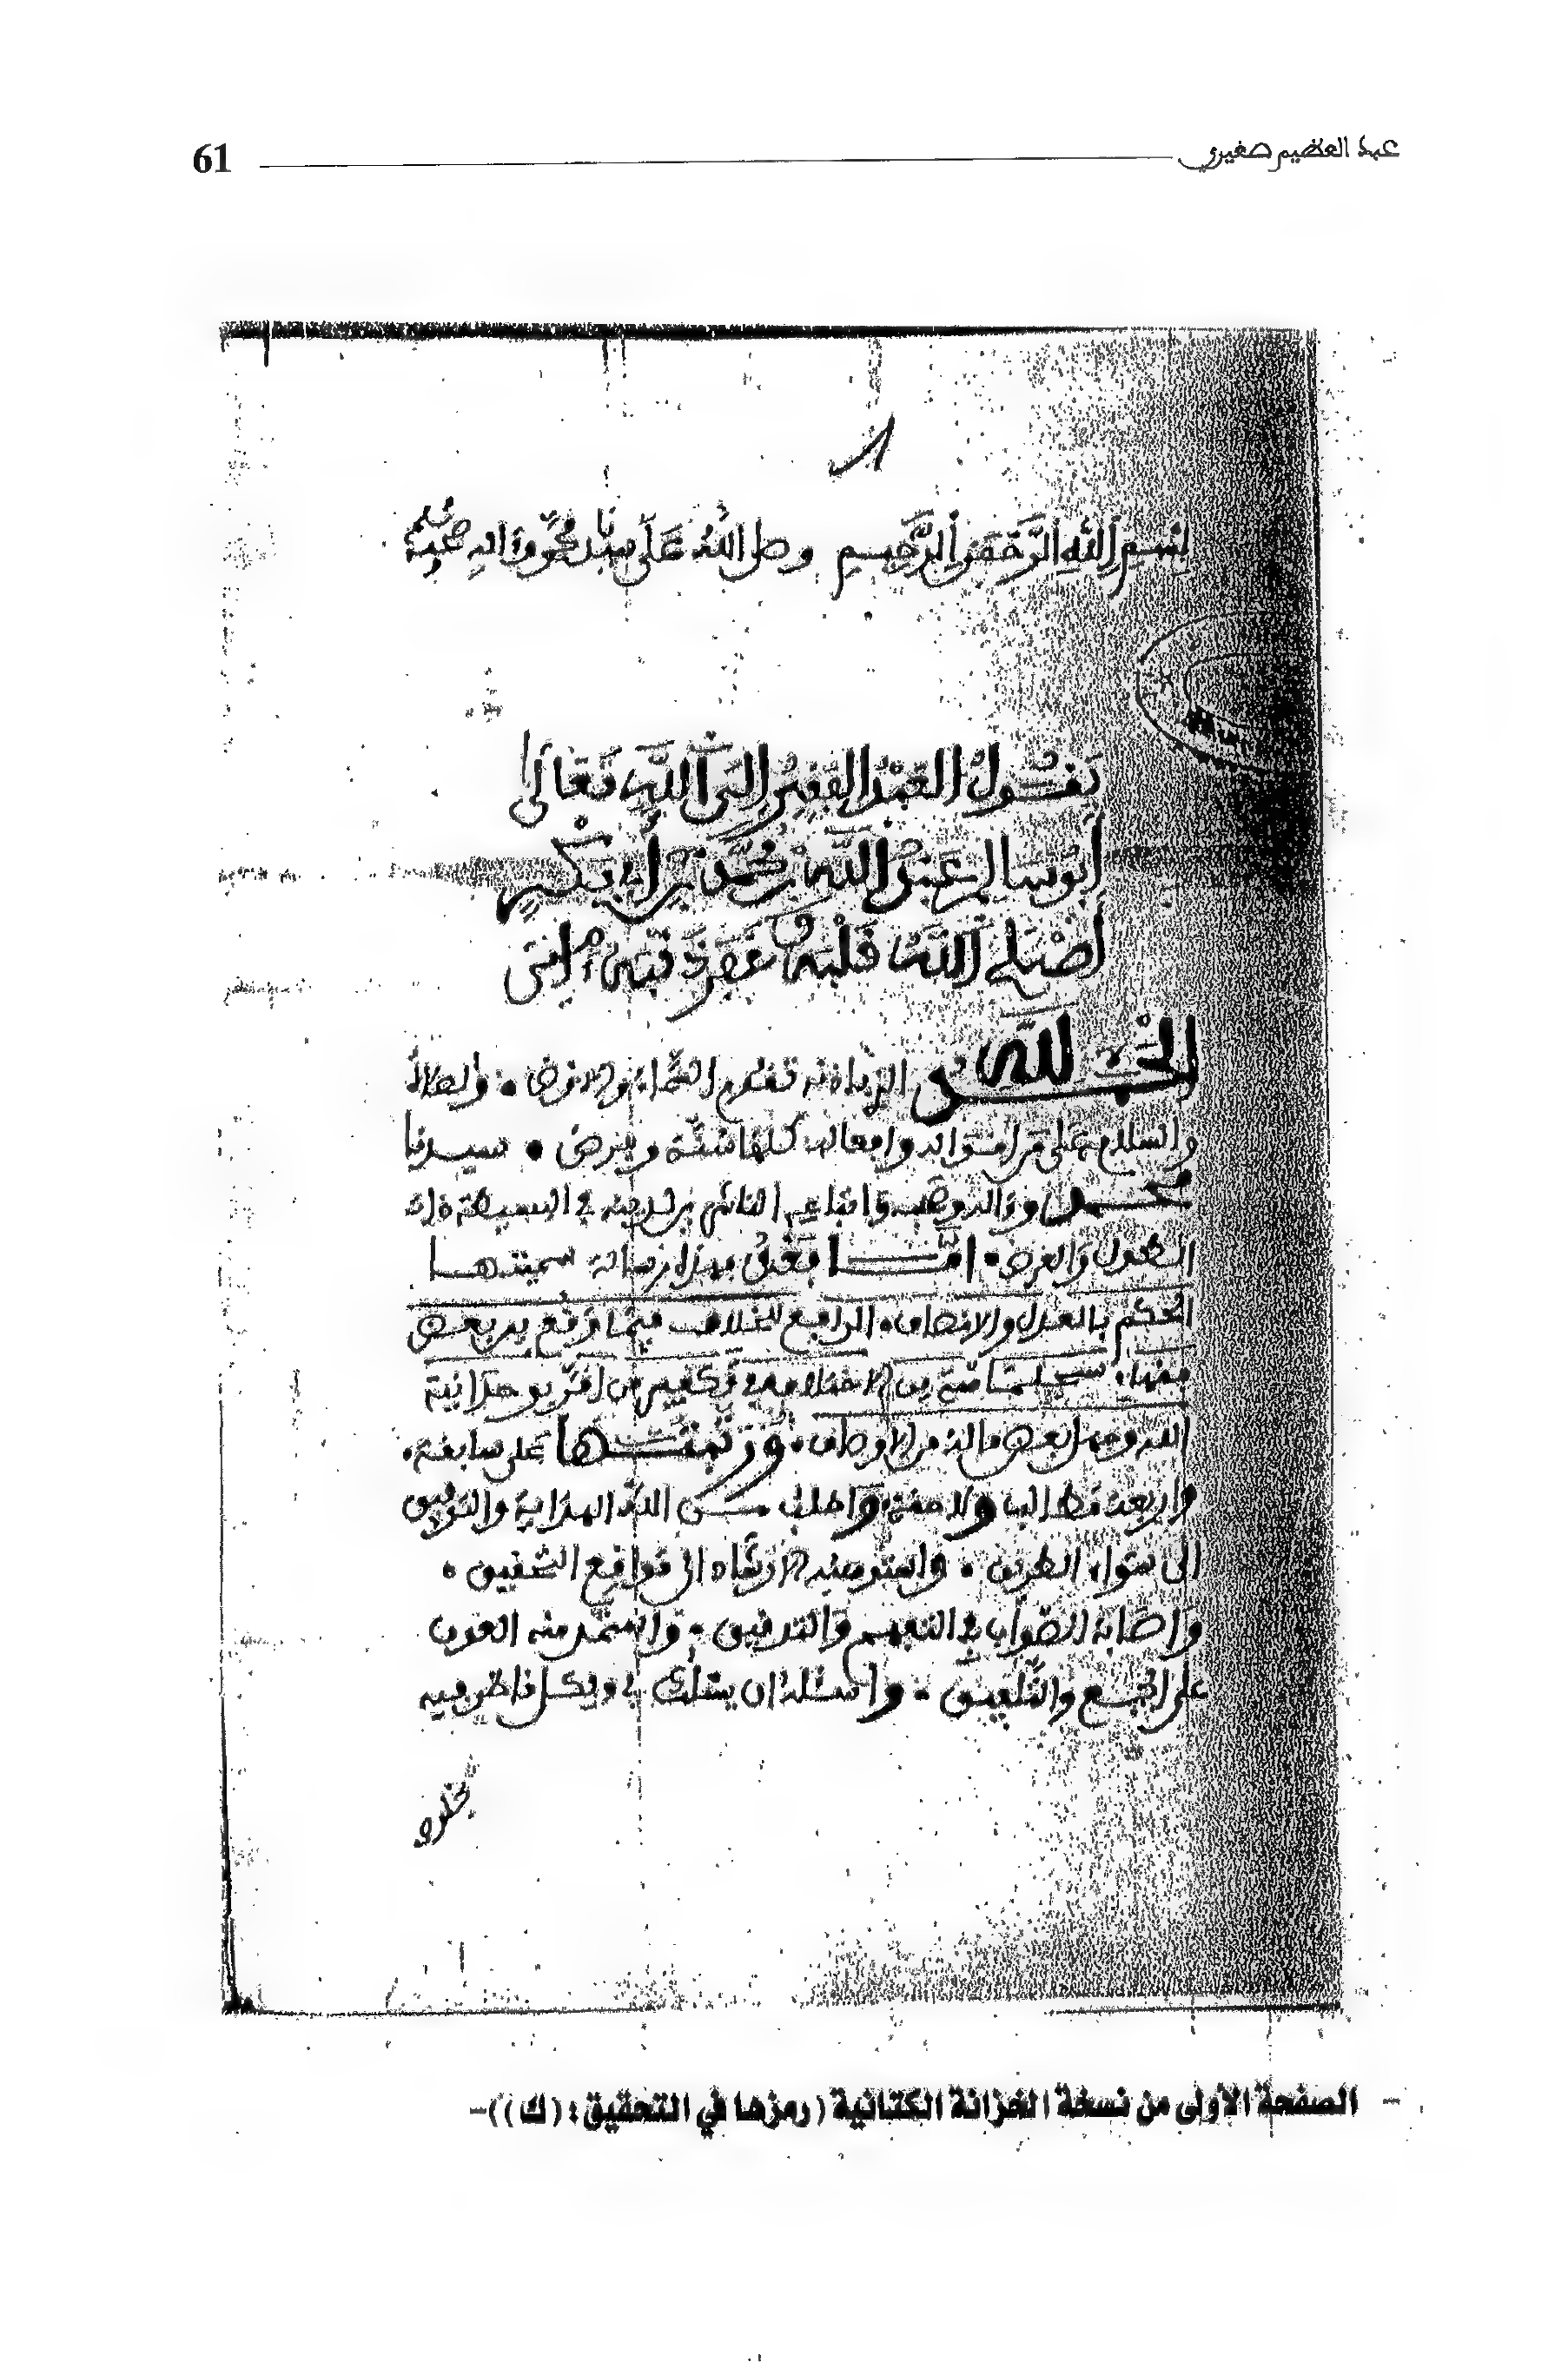 عبد العظيم صغيري
61
بسم الله الرحمن الرحيم وصلى الله على سيدنا محمد وآله وصحبه
يقول العبد الفقير إلى الله تعالى
أبو سالم عبد الله بن محمد بن أبي بكر
أصلح الله قلبه وغفر ذنبه آمين
الحمد لله الذي بإذنه تقوم السماء والأرض • والصلاة
والسلام على من أقواله وأفعاله كلها سنة وفرض • سيدنا
محمد وآله وصحبه وأتباعه في البسيطة ذات
الطول والعرض • أما بعد فهذا رسالة سميتها
الحكم بالعدل والإنصاف • الرافع للخلاف فيما وقع بين بعض
فقهاء سجلماسة من الاختلاف في تكفير من أقر بوحدانية
الله وجهل بعض ما له من الأوصاف • ورتبتها على سابقة •
وأربعة مطالب ولاحقة • وأطلب من الله الهداية والتوفيق
إلى سواء الطريق • الإرشاد إلى مواقع التحقيق •
وإصابة الصواب في التفهيم والتدقيق • وأستمد منه العون
على الجمع والتلفيق • وأسئله أن يسلك بي وبكل ناظر فيه
- الصفحة الأولى من نسخة الخزانة الكتانية (رمزها في التحقيق: (ك))-